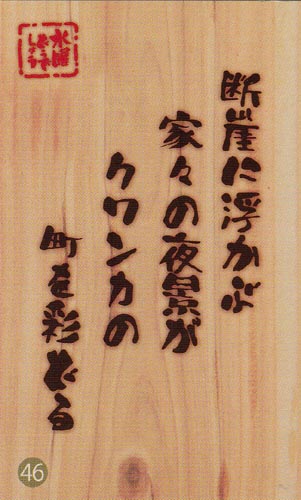 断崖に浮かぶ
家々の夜景が
クワンカの
町を彩どる
水曜
どうで
しょう
46